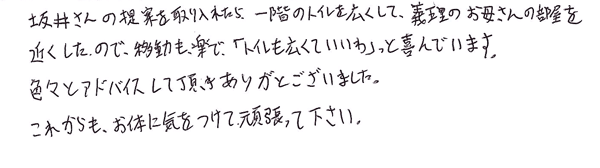 坂井さんの提案を取り入れたら、一階のトイレを広くして、義理のお母さんの部屋を
近くしたので、移動も楽で、「トイレも広くていいわ」っと喜んでいます。
色々とアドバイスして頂きありがとございました。
これからも、お体に気をつけて頑張って下さい。